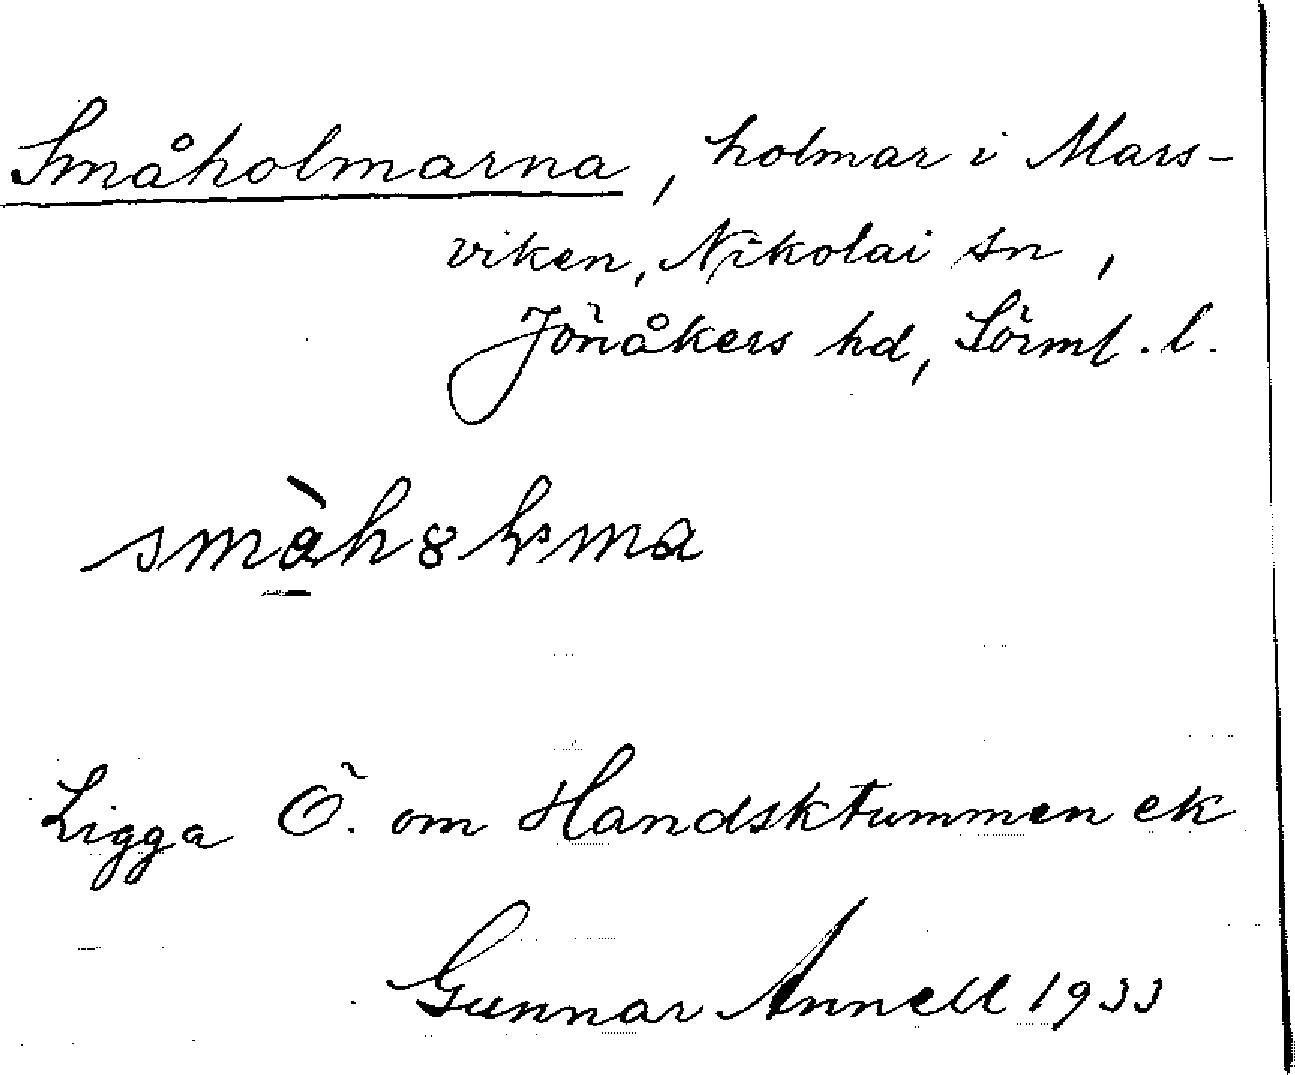 Småholmarna, holmar i Mars-
viken, Nikolai sn,
Jönåkers hd, Sörml. l.
Ligga Ö. om Handsktummen ek
Gunnar Annell 1933